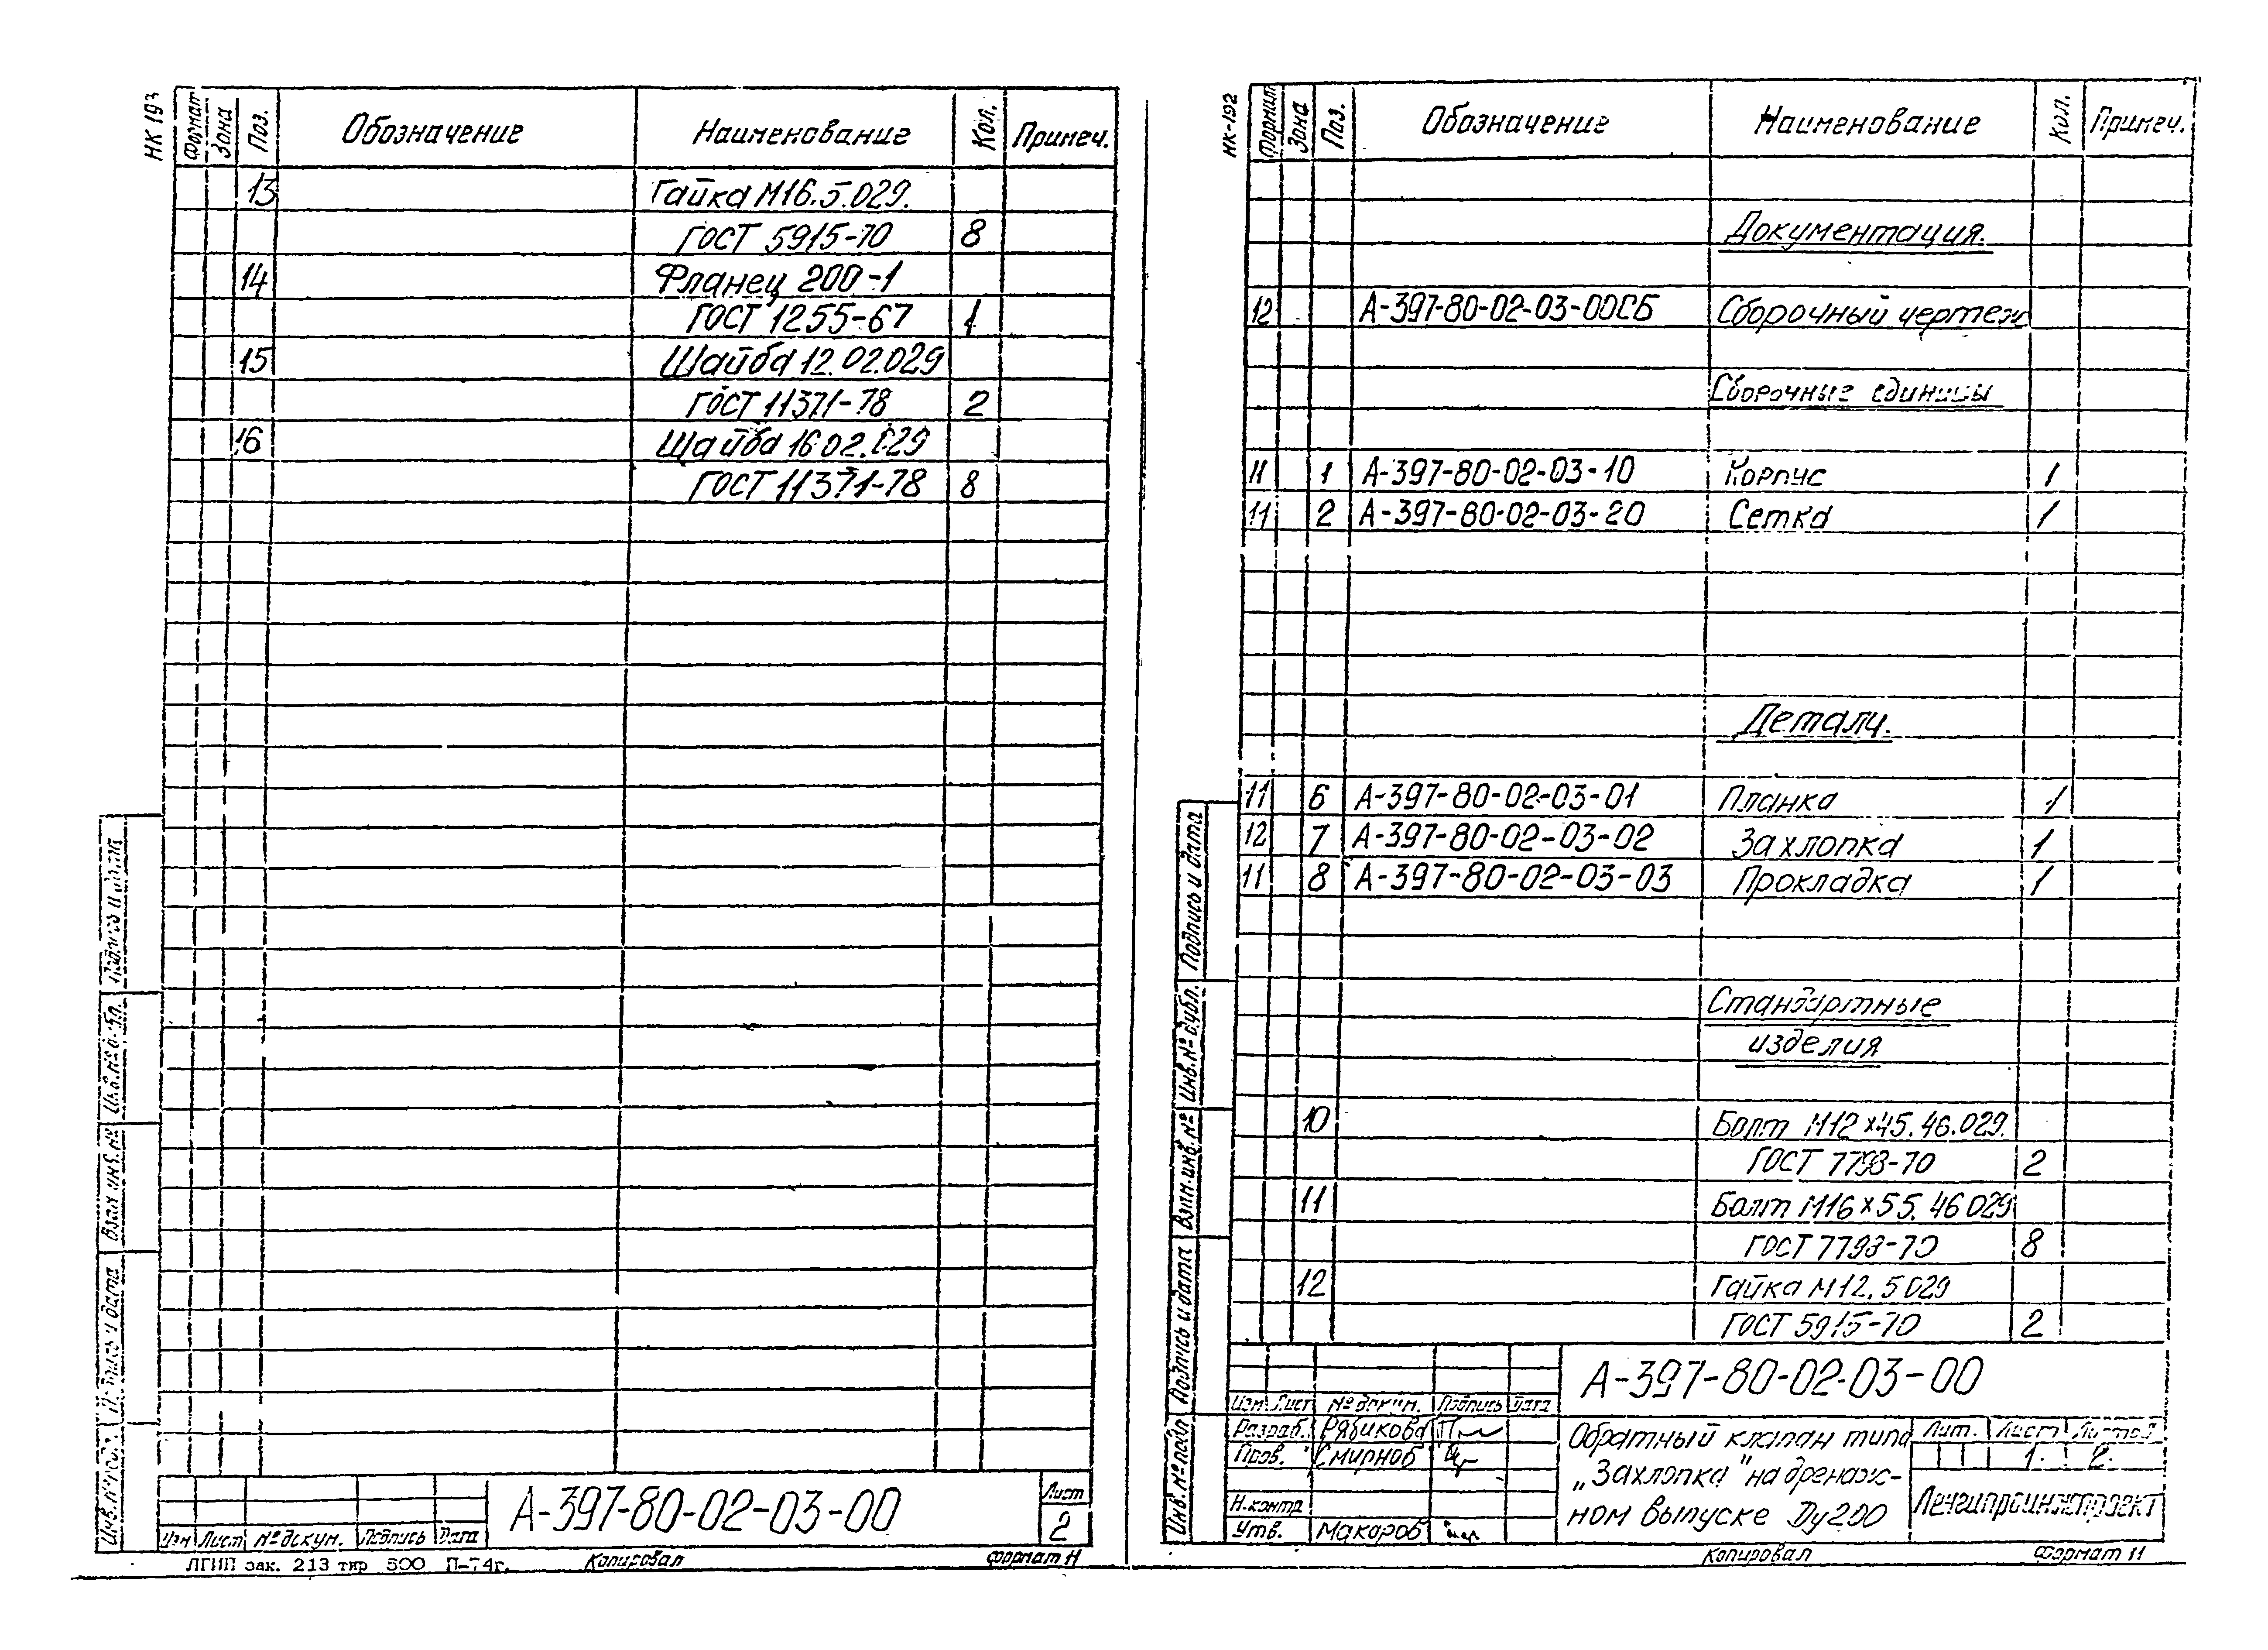 НК 193
Формат Зона Поз. Обозначение Наименование Кол. Примеч.
13 Гайка М16.5.029.
ГОСТ 5915-70 8
14 Фланец 200-1
ГОСТ 1255-67 1
15 Шайба 12.02.029
ГОСТ 11371-78 2
16 Шайба 16 02.029
ГОСТ 11371-78 8
Инв.№ подл. Подпись и дата Взам.инв.№ Инв.№ дубл. Подпись и дата
Изм Лист №докум. Подпись Дата
А-397-80-02-03-00
Лист
2
ЛГИП зак. 213 тир 500 П-74г.
Копировал
Формат 11
НК-192
Формат Зона Поз. Обозначение Наименование Кол. Примеч.
Документация.
12 А-397-80-02-03-00СБ Сборочный чертеж
Сборочные единицы
11 1 А-397-80-02-03-10 Корпус 1
11 2 А-397-80-02-03-20 Сетка 1
Детали.
11 6 А-397-80-02-03-01 Планка 1
12 7 А-397-80-02-03-02 Захлопка 1
11 8 А-397-80-02-03-03 Прокладка 1
Стандартные
изделия
10 Болт М12×45.46.029.
ГОСТ 7798-70 2
11 Болт М16×55.46 029
ГОСТ 7798-70 8
12 Гайка М12.5 029
ГОСТ 5915-70 2
Инв.№ подл Подпись и дата Взам.инв.№ Инв.№ дубл. Подпись и дата
А-397-80-02-03-00
Изм Лист №докум. Подпись Дата
Разраб. Рябикова
Пров. Смирнов
Н.контр
Утв. Макаров
Обратный клапан типа
„Захлопка" на дренаж-
ном выпуске Ду200
Лит. Лист Листов
1. 2.
Ленгипроинжпроект
Копировал
Формат 11